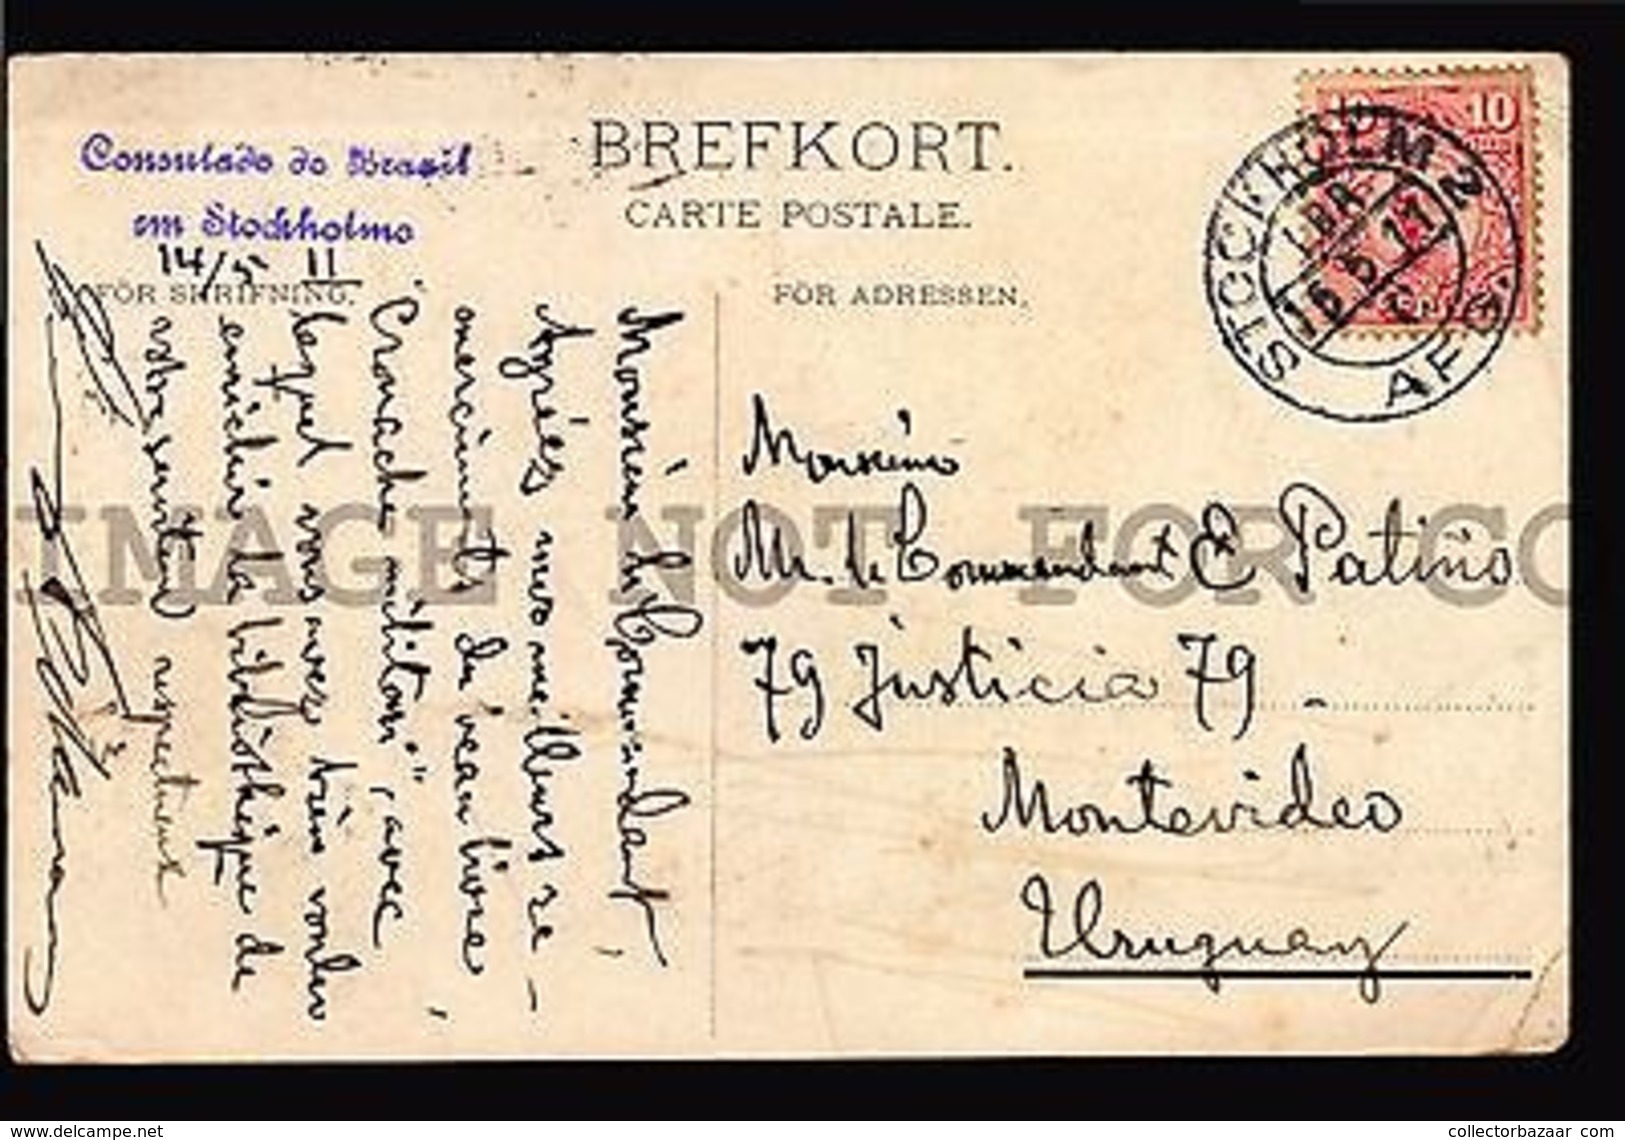 Consulado do Brasil
em Stockholmo
14/5 11
BREFKORT.
CARTE POSTALE.
FÖR SKRIFNING.
FÖR ADRESSEN.
10 10
STOCKHOLM 2
LBR.
15 5 11
AFG.
Monsieur le Commandant,
Agréez mes meilleurs re-
merciments du beau livre,
"Cronache militari", avec
lequel vous avez bien voulu
enrichir la bibliothèque de
votre serviteur respectueux
Monsieur
Mr. le Commandant E Patiño
79 Justicia 79.
Montevideo
Uruguay
IMAGE NOT FOR CO
www.delcampe.net
collectorbazaar com